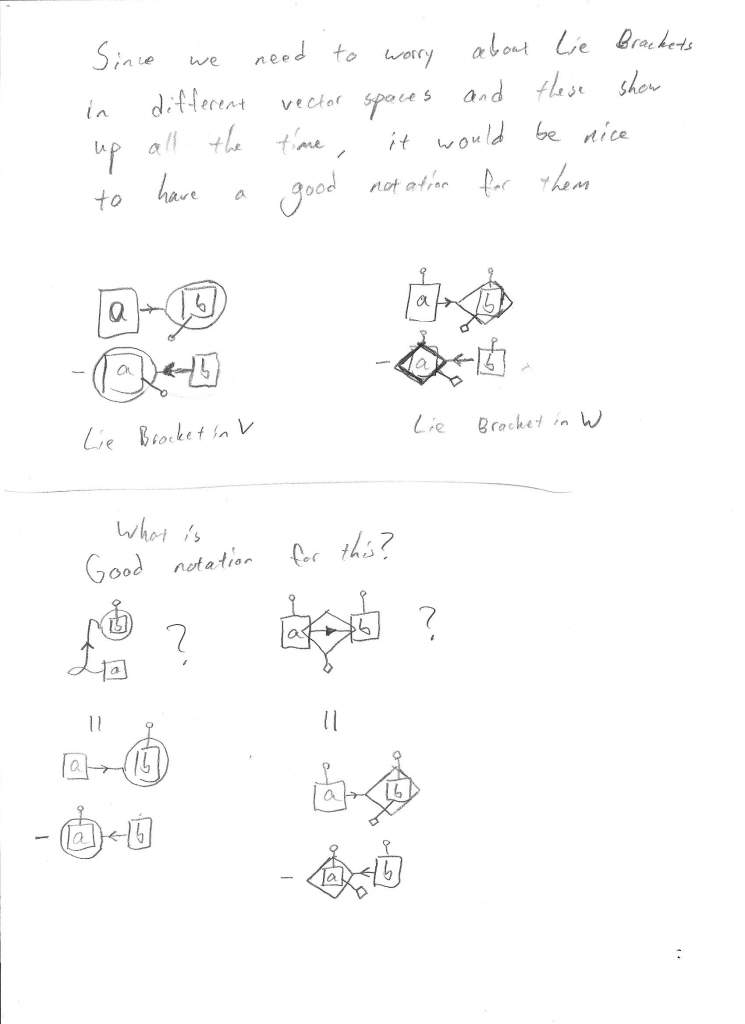 Since we need to worry about Lie Brackets
in different vector spaces and these show
up all the time, it would be nice
to have a good notation for them
a b a b
- a b - a b
Lie Bracket in V Lie Bracket in W
What is
Good notation for this?
b ? a b ?
a
= =
a b a b
- a b - a b